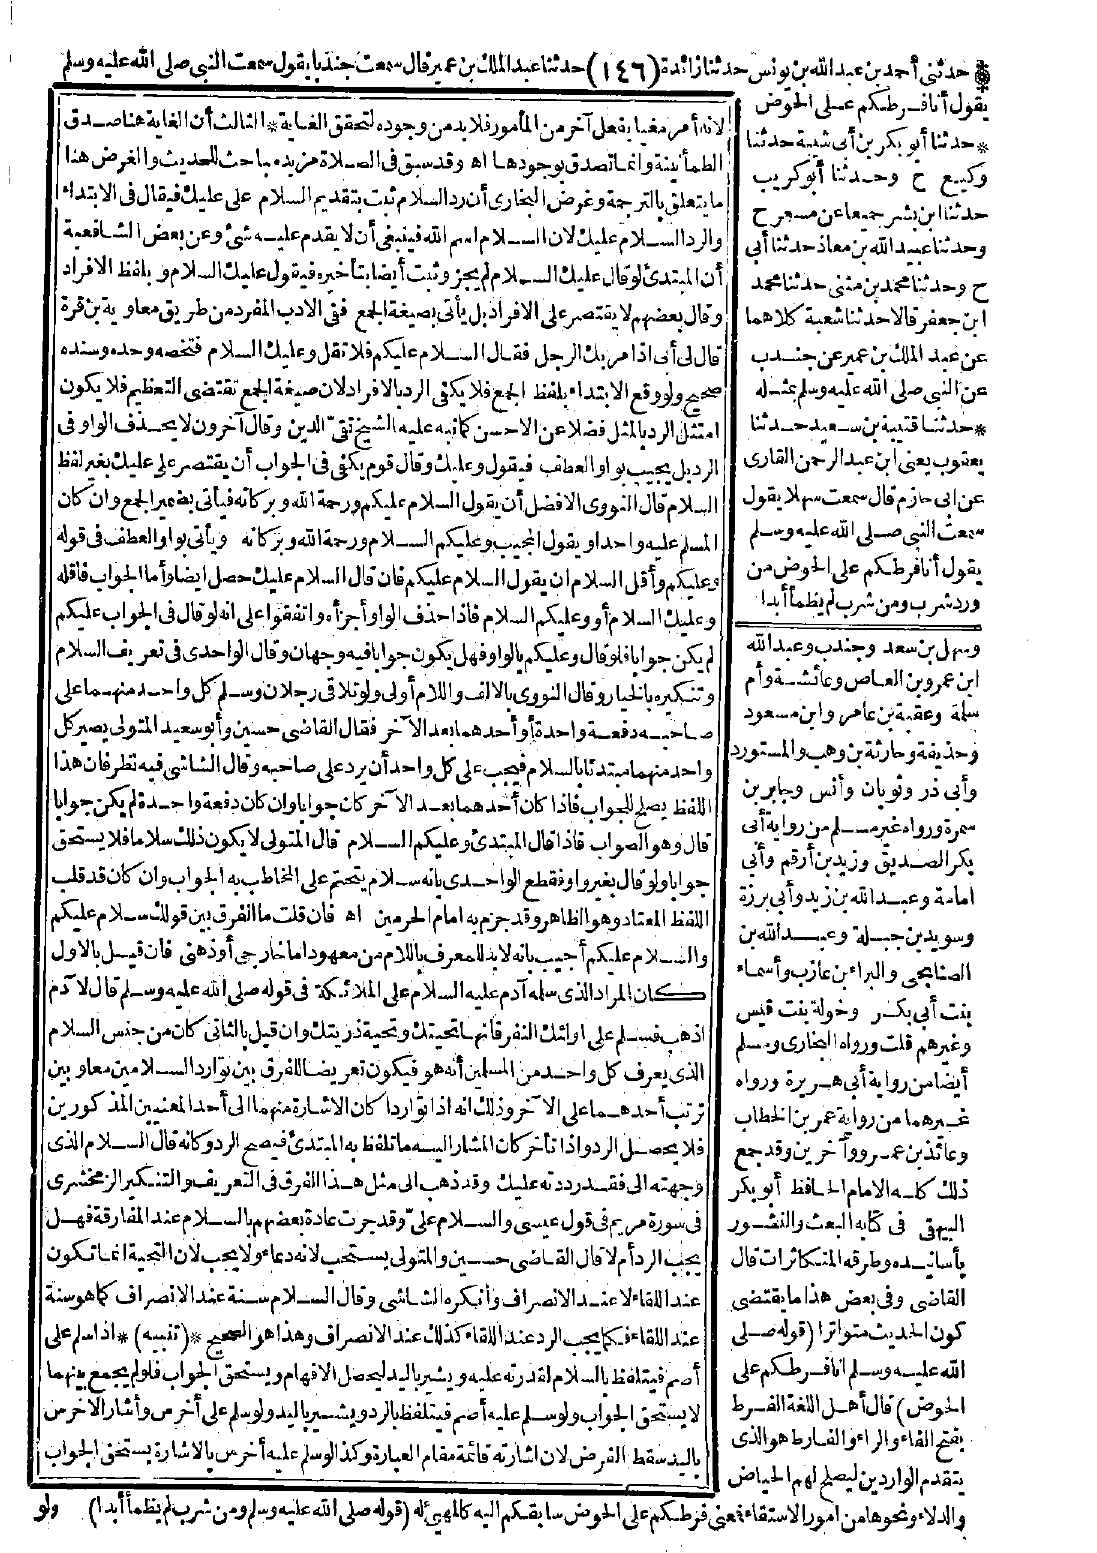 * حدثنى أحمد بن عبد الله بن يونس حدثنا زائدة (١٤٦) حدثنا عبد الملك بن عمير قال سمعت جندبا يقول سمعت النبى صلى الله عليه وسلم
يقول أنا فرطكم على الحوض
* حدثنا أبو بكر بن أبى شيبة حدثنا
وكيع ح وحدثنا أبو كريب
حدثنا ابن بشر جميعا عن مسعر ح
وحدثنا عبيد الله بن معاذ حدثنا أبى
ح وحدثنا محمد بن مثنى حدثنا محمد
ابن جعفر قالا حدثنا شعبة كلاهما
عن عبد الملك بن عمير عن جندب
عن النبى صلى الله عليه وسلم بمثله
* حدثنا قتيبة بن سعيد حدثنا
يعقوب يعنى ابن عبد الرحمن القارى
عن ابى حازم قال سمعت سهلا يقول
سمعت النبى صلى الله عليه وسلم
يقول أنا فرطكم على الحوض من
ورد شرب ومن شرب لم يظمأ أبدا
وسهل بن سعد وجندب وعبد الله
ابن عمرو بن العاص وعائشة وأم
سلمة وعقبة بن عامر وابن مسعود
وحذيفة وحارثة بن وهب والمستورد
وأبى ذر وثوبان وأنس وجابر بن
سمرة ورواه غير مسلم من رواية أبى
بكر الصديق وزيد بن أرقم وأبى
امامة وعبد الله بن زيد وأبى برزة
وسويد بن جبلة وعبد الله بن
الصنابحى والبراء بن عازب وأسماء
بنت أبى بكر وخولة بنت قيس
وغيرهم قلت ورواه البخارى ومسلم
أيضا من رواية أبى هريرة ورواه
غيرهما من رواية عمر بن الخطاب
وعائذ بن عمرو وآخرين وقد جمع
ذلك كله الامام الحافظ أبو بكر
البيهقى فى كتابه البعث والنشور
بأسانيده وطرقه المتكاثرات قال
القاضى وفى بعض هذا ما يقتضى
كون الحديث متواترا (قوله صلى
الله عليه وسلم انا فرطكم على
الحوض) قال أهل اللغة الفرط
بفتح الفاء والراء والفارط هو الذى
يتقدم الواردين ليصلح لهم الحياض
لانه أمر مغيا بفعل آخر من المأمور فلا بد من وجوده لتحقق الغاية * الثالث أن الغاية هنا صدق
الطمأنينة وانما تصدق بوجودها اه وقد سبق فى الصلاة مزيد مباحث للحديث والغرض هنا
ما يتعلق بالترجمة وغرض البخارى أن رد السلام ثبت بتقديم السلام على عليك فيقال فى الابتداء
والرد السلام عليك لان السلام اسم الله فينبغى أن لا يقدم عليه شئ وعن بعض الشافعية
أن المبتدئ لو قال عليك السلام لم يجز وثبت أيضا بتأخيره فيقول عليك السلام وبلفظ الافراد
وقال بعضهم لا يقتصر على الافراد بل يأتى بصيغة الجمع ففى الادب المفرد من طريق معاوية بن قرة
قال لى أبى اذا مر بك الرجل فقال السلام عليكم فلا تقل وعليك السلام فتخصه وحده وسنده
صحيح ولو وقع الابتداء بلفظ الجمع فلا يكفى الرد بالافراد لان صيغة الجمع تقتضى التعظيم فلا يكون
امتثل الرد بالمثل فضلا عن الاحسن كما نبه عليه الشيخ تقى الدين وقال آخرون لا يحذف الواو فى
الرد بل يجيب بواو العطف فيقول وعليك وقال قوم يكفى فى الجواب أن يقتصر على عليك بغير لفظ
السلام قال النووى الافضل أن يقول السلام عليكم ورحمة الله وبركاته فيأتى بضمير الجمع وان كان
المسلم عليه واحدا ويقول المجيب وعليكم السلام ورحمة الله وبركاته ويأتى بواو العطف فى قوله
وعليكم وأقل السلام ان يقول السلام عليكم فان قال السلام عليك حصل ايضا وأما الجواب فأقله
وعليك السلام أو وعليكم السلام فاذا حذف الواو أجزأه واتفقوا على انه لو قال فى الجواب عليكم
لم يكن جوابا فلو قال وعليكم بالواو فهل يكون جوابا فيه وجهان وقال الواحدى فى تعريف السلام
وتنكيره بالخيار وقال النووى بالالف واللام أولى ولو تلاقى رجلان وسلم كل واحد منهما على
صاحبه دفعة واحدة أو أحدهما بعد الآخر فقال القاضى حسين وأبو سعيد المتولى يصير كل
واحد منهما مبتدئا بالسلام فيجب على كل واحد أن يرد على صاحبه وقال الشاشى فيه نظر فان هذا
اللفظ يصلح للجواب فاذا كان أحدهما بعد الآخر كان جوابا وان كان دفعة واحدة لم يكن جوابا
قال وهو الصواب فاذا قال المبتدئ وعليكم السلام قال المتولى لا يكون ذلك سلاما فلا يستحق
جوابا ولو قال بغير واو فقطع الواحدى بانه سلام يتحتم على المخاطب به الجواب وان كان قد قلب
اللفظ المعتاد وهو الظاهر وقد جزم به امام الحرمين اه فان قلت ما الفرق بين قولك سلام عليكم
والسلام عليكم أجيب بانه لا بد للمعرف باللام من معهود اما خارجى أو ذهنى فان قيل بالاول
كان المراد الذى سلمه آدم عليه السلام على الملائكة فى قوله صلى الله عليه وسلم قال لآدم
اذهب فسلم على اولئك النفر فانها تحيتك وتحية ذريتك وان قيل بالثانى كان من جنس السلام
الذى يعرف كل واحد من المسلمين أنه هو فيكون تعريضا للفرق بين توارد السلامين معا وبين
ترتب أحدهما على الآخر وذلك انه اذا تواردا كان الاشارة منهما الى أحد المعنيين المذكورين
فلا يحصل الرد واذا تأخر كان المشار اليه ما تلفظ به المبتدئ فيصح الرد وكانه قال السلام الذى
وجهته الى فقد رددته عليك وقد ذهب الى مثل هذا الفرق فى التعريف والتنكير الزمخشرى
فى سورة مريم فى قول عيسى والسلام علىّ وقد جرت عادة بعضهم بالسلام عند المفارقة فهل
يجب الرد أم لا قال القاضى حسين والمتولى يستحب لانه دعاء ولا يجب لان التحية انما تكون
عند اللقاء لا عند الانصراف وأنكره الشاشى وقال السلام سنة عند الانصراف كما هو سنة
عند اللقاء فكما يجب الرد عند اللقاء كذلك عند الانصراف وهذا هو الصحيح * (تنبيه) * اذا سلم على
أصم فيتلفظ بالسلام لقدرته عليه ويشير باليد ليحصل الافهام ويستحق الجواب فلو لم يجمع بينهما
لا يستحق الجواب ولو سلم عليه أصم فيتلفظ بالرد ويشير باليد ولو سلم على أخرس وأشار الاخرس
باليد سقط الفرض لان اشارته قائمة مقام العبارة وكذا لو سلم عليه أخرس بالاشارة يستحق الجواب
والدلاء ونحوها من أمور الاستقاء فمعنى فرطكم على الحوض سابقكم اليه كالمهيئ له (قوله صلى الله عليه وسلم ومن شرب لم يظمأ أبدا) ولو